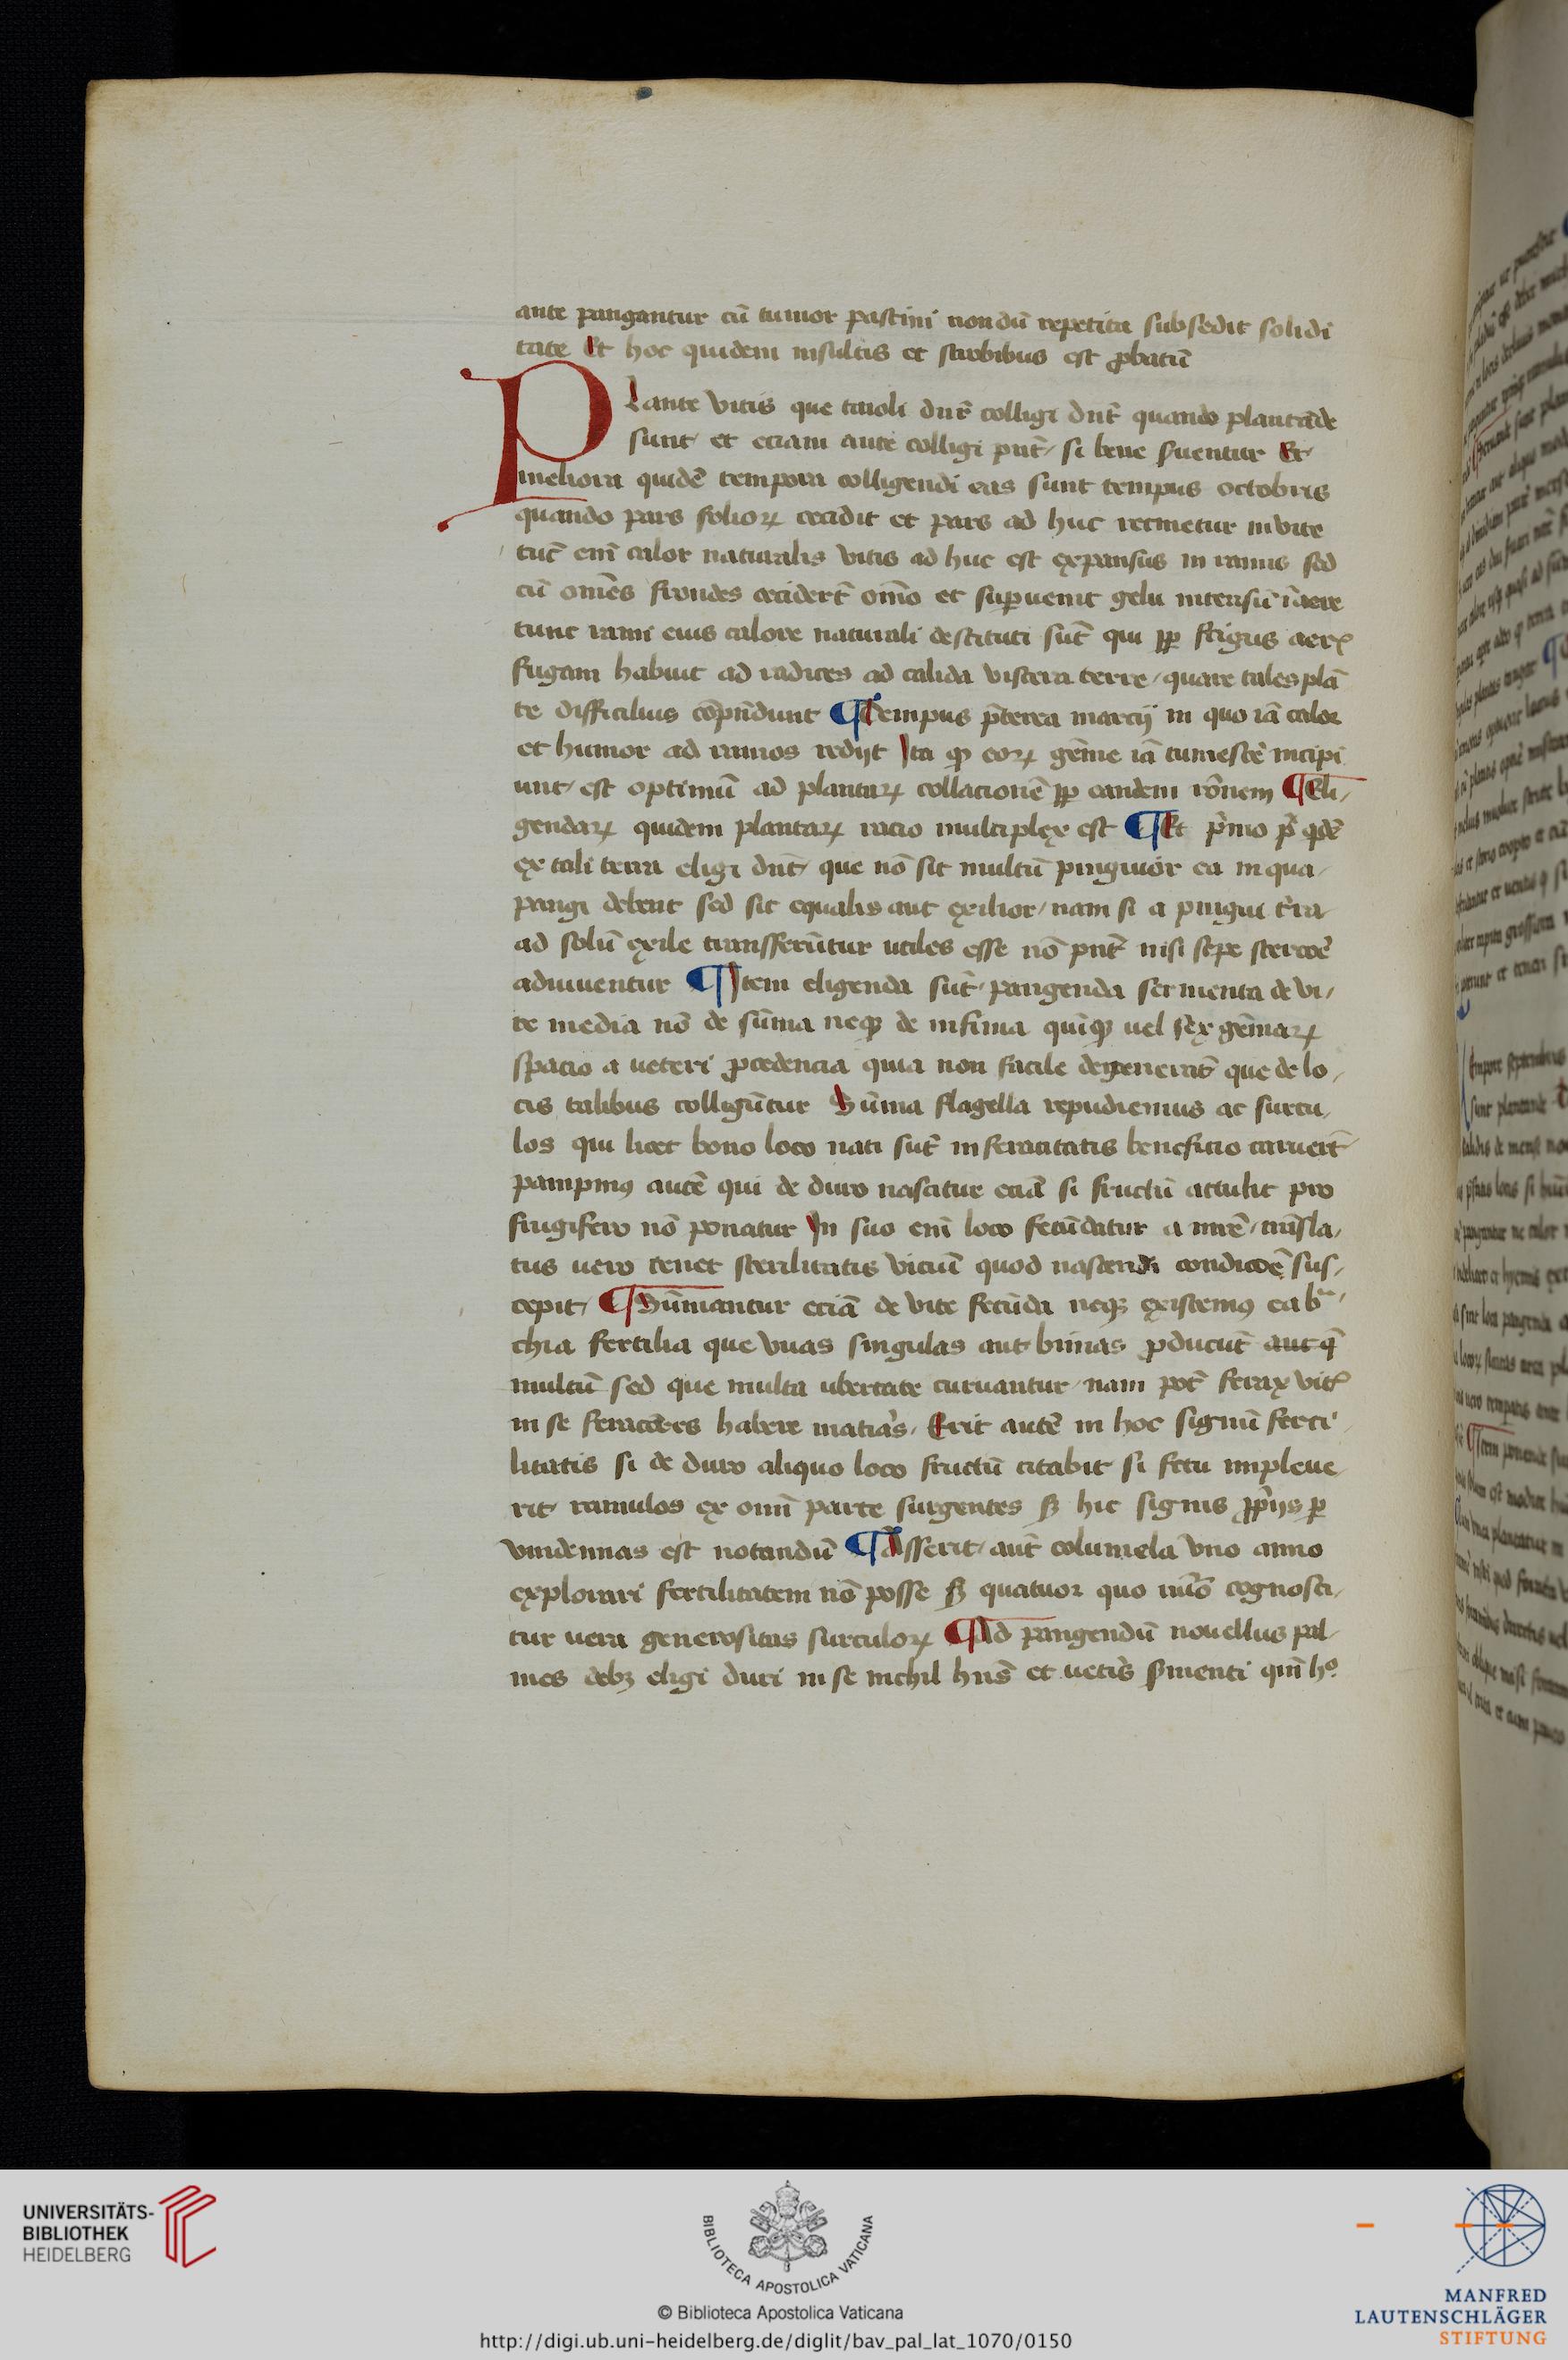 ante pangantur cū tumor pastini nondū repetita subsedit solidi
tate Et hoc quidem in sulcis et scrobibus est ꝓbatū
Plante vitis que tirioli dnr̄ colligi dnt̄ quando plantāde
sunt et eciam ante colligi pnt̄ si bene ſuentur Et
meliora quidē tempora colligendi eas sunt tempus octobris
quando pars folioꝝ cecidit et pars ad huc retinetur in vite
tūc enī calor naturalis vitis ad huc est expansus in ramis sed
cū omēs frondes cecidert̄ om̄o et suꝑuenit gelu intensū ī aere
tunc rami eius calore naturali destituti sūt qui ꝓp frigus aerꝭ
fugam habuit ad radices ad calida viscera terre quare tales plā
te difficilius cōpn̄dunt ¶ Tempus p̄terea marcij in quo iā calor
et humor ad ramos redijt Ita ꝙ eoꝝ gēme iā tumescē incipi
unt est optimū ad plantaꝝ collacionē ꝓp eandem rōnem ¶ Eli
gendaꝝ quidem plantaꝝ racio multiplex est ¶ Et p̄mo p̄ qdē
ex tali terra eligi dnt̄ que nō sit multū pinguior ea in qua
pangi debent sed sit equalis aut exilior nam si a pingui tr̄ra
ad solū exile transferūtur utiles esse nō pnt̄ nisi sepe stercoē
adiuuentur ¶ Item eligenda sūt pangenda sermenta de vi
te media nō de sūma neqꝫ de infima quīqꝫ uel sex gēmaꝝ
spacio a ueteri ꝓcedencia quia non facile degenerāt que de lo
cis talibus colligūtur Sūma flagella repudiemus ac surcu
los qui licet bono loco nati sūt in feracitatis beneficio caruert̄
pampinꝰ autē qui de duro nascitur eciā si fructū attulit pro
frugifero nō ponatur In suo enī loco fecūdatur a mr̄e transla
tus uero tenet sterilitatis viciū quod nascendi condicōe sus
cepit ¶ Sūmantur eciā de vite fecūda neqꝫ existemꝰ ea bra
chia fertilia que vuas singulas aut binas ꝓducūt aut q̄
multū sed que multa ubertate curuantur nam pot̄ ferax vitꝭ
in se feraciores habere matiās Erit autē in hoc signū ferti
litatis si de duro aliquo loco fructū citabit si fetu impleue
rit ramulos ex omī parte surgentes sꝫ hic signis ꝓpriis ꝑ
vindemias est notandū ¶ Asserit aut̄ columela vno anno
explorari fertilitatem nō posse sꝫ quatuor quo nūo cognosci
tur uera generositas surculoꝝ ¶ Ad pangendū nouellus pal
mes debꝫ eligi duri in se nichil hns̄ et ueterīs
UNIVERSITÄTS-
BIBLIOTHEK
HEIDELBERG
BIBLIOTECA APOSTOLICA VATICANA
© Biblioteca Apostolica Vaticana
http://digi.ub.uni-heidelberg.de/diglit/bav_pal_lat_1070/0150
MANFRED
LAUTENSCHLÄGER
STIFTUNG